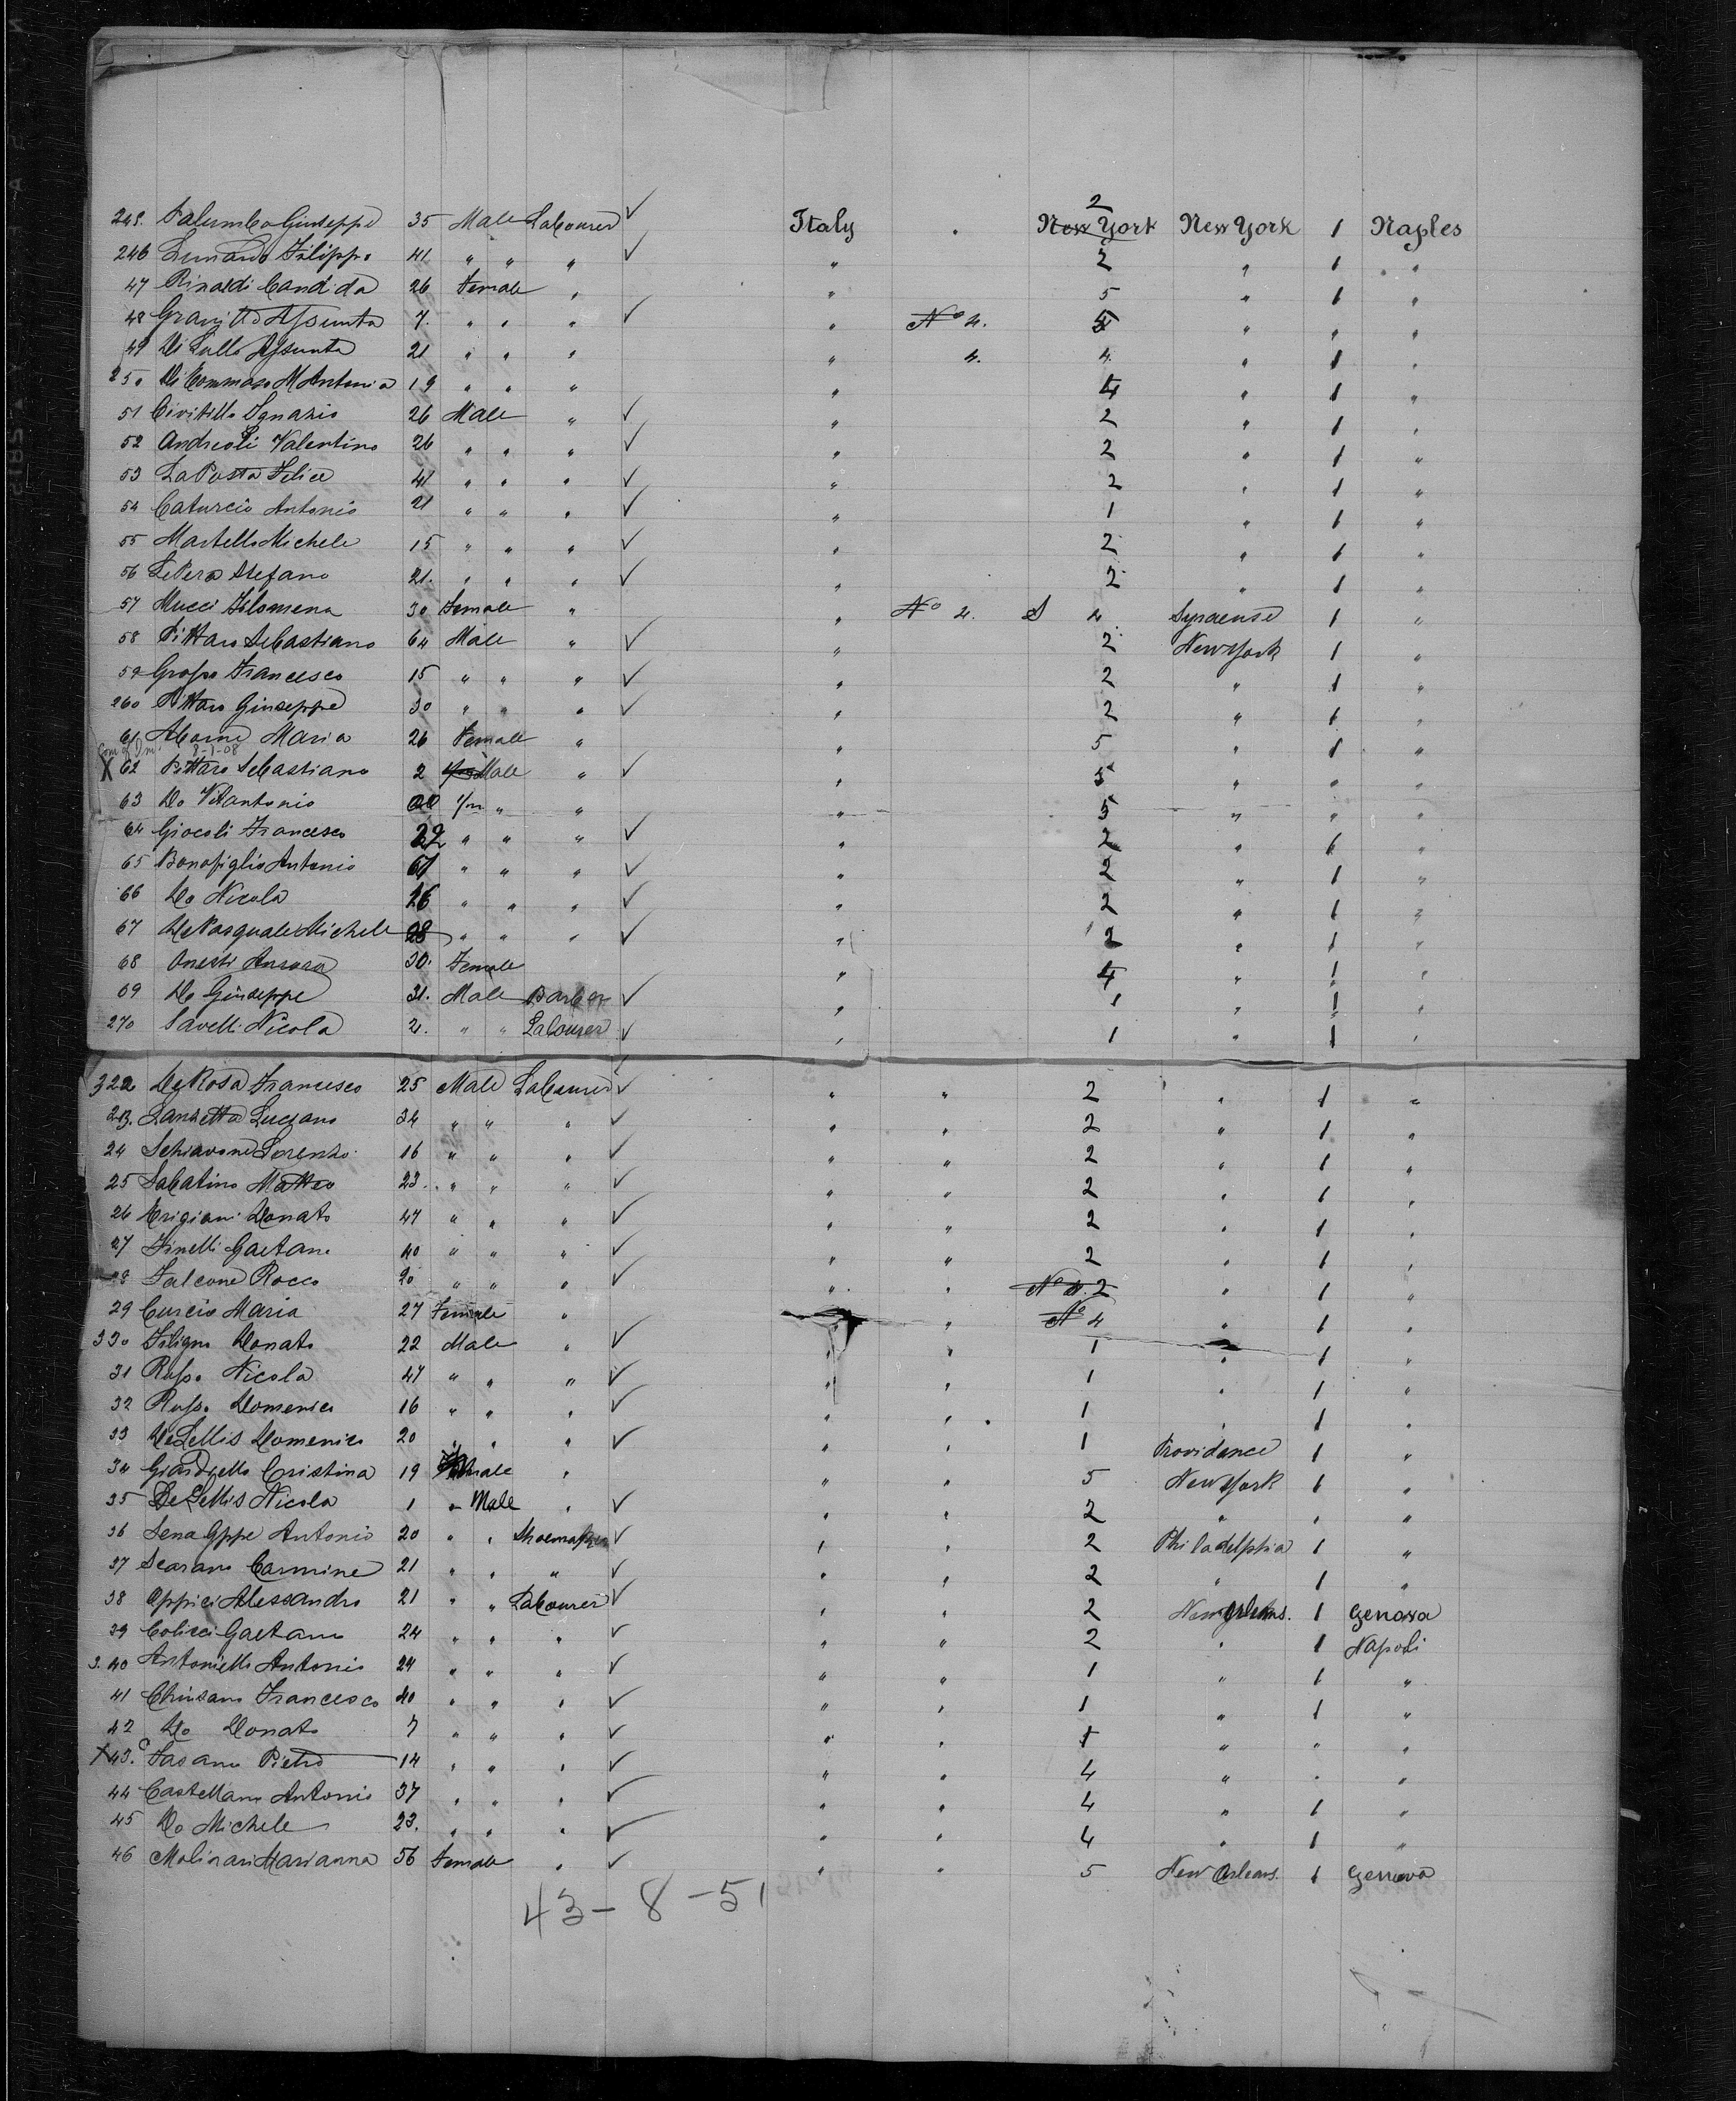 245. Palumbo Giuseppe 35 Male Labourer ✓ Italy " 2 New York New York 1 Naples
246 Lunardo Filippo 41 " " " ✓ " 2 " 1 "
47 Rinaldi Candida 26 Female " " 5 " 1 "
48 Assunta 7. " " " ✓ " No 4. 5 " " "
49 Di Lullo Assunta 21 " " " " 4. 4 " 1 "
250 Di Tommaso M Antonia 19 " " " " 4 " 1 "
51 Civitillo Ignazio 26 Male " ✓ " 2 " 1 "
52 Andreoli Valentino 26 " " " ✓ " 2 " 1 "
53 La Posta Felice 41 " " " ✓ " 2 " 1 "
54 Caturcio Antonio 21 " " " ✓ " 1 " 1 "
55 Martello Michele 15 " " " ✓ " 2 " 1 "
56 Le Pera Stefano 21. " " " ✓ " 2 " 1 "
57 Mucci Filomena 30 Female " " No 4. S 4 Syracuse 1 "
58 Pittaro Sebastiano 64 Male " ✓ " 2 New York 1 "
59 Grosso Francesco 15 " " " ✓ " 2 " 1 "
260 Pittaro Giuseppe 30 " " " ✓ " 2 " 1 "
61 Maria 26 Female " " 5 " 1 "
8-1-08
X 62 Pittaro Sebastiano 2 Male " ✓ " 5 " " "
63 Do Vitantonio " " " 5 " " "
64 Giocoli Francesco 32 " " " ✓ " 2 " 1 "
65 Bonofiglio Antonio 61 " " " ✓ " 2 " 1 "
66 Do Nicola 26 " " " ✓ " 2 " 1 "
67 De Pasquale Michele 28 " " " ✓ " 2 " 1 "
68 Onesti Aurora 30. Female " 4 " 1 "
69 Do Giuseppe 31. Male Barber ✓ " 1 " 1 "
270 Savelli Nicola " " Labourer ✓ " 1 " 1 "
322 De Rosa Francesco 25 Male Labourer ✓ " " 2 " 1 "
23. Lanzetta Luciano 34 " " " ✓ " " 2 " 1 "
24 Schiavone Lorenzo 16 " " " ✓ " " 2 " 1 "
25 Sabatino Matteo 23. " " " ✓ " " 2 " 1 "
26 Donato 47 " " " ✓ " " 2 " 1 "
27 Finelli Gaetano 40 " " " ✓ " " 2 " 1 "
28 Falcone Rocco 20 " " " ✓ " " No 4. 2 " 1 "
29 Curcio Maria 27 Female " " " No 4 " 1 "
330 Donato 22 Male " ✓ " " 1 " 1 "
31 Russo Nicola 47 " " " ✓ " " 1 " 1 "
32 Russo Domenico 16 " " " ✓ " " 1 " 1 "
33 De Lellis Domenico 20 " " " ✓ " " 1 Providence 1 "
34 Giardiello Cristina 19 Female " " " 5 New York 1 "
35 De Lellis Nicola 1 " Male " ✓ " " 2 " " "
36 Sena Gppe Antonio 20 " " Shoemaker ✓ " " 2 Philadelphia 1 "
37 Scarano Carmine 21 " " " ✓ " " 2 " 1 "
38 Oppici Alessandro 21 " " Labourer ✓ " " 2 New Orleans. 1 Genova
39 Colicci Gaetano 24 " " " ✓ " " 2 " 1 Napoli
3.40 Antoniello Antonio 24 " " " ✓ " " 1 " 1 "
41 Francesco 40 " " " ✓ " " 1 " 1 "
42 Do Donato 7 " " " ✓ " " 1 " " "
X 43. Fasano Pietro 14 " " " ✓ " " 4 " " "
44 Castellano Antonio 37 " " " ✓ " " 4 " 1 "
45 Do Michele 23. " " " ✓ " " 4 " 1 "
46 Molinari Marianna 56 Female " ✓ " " 5 New Orleans. 1 Genova
43-8-51